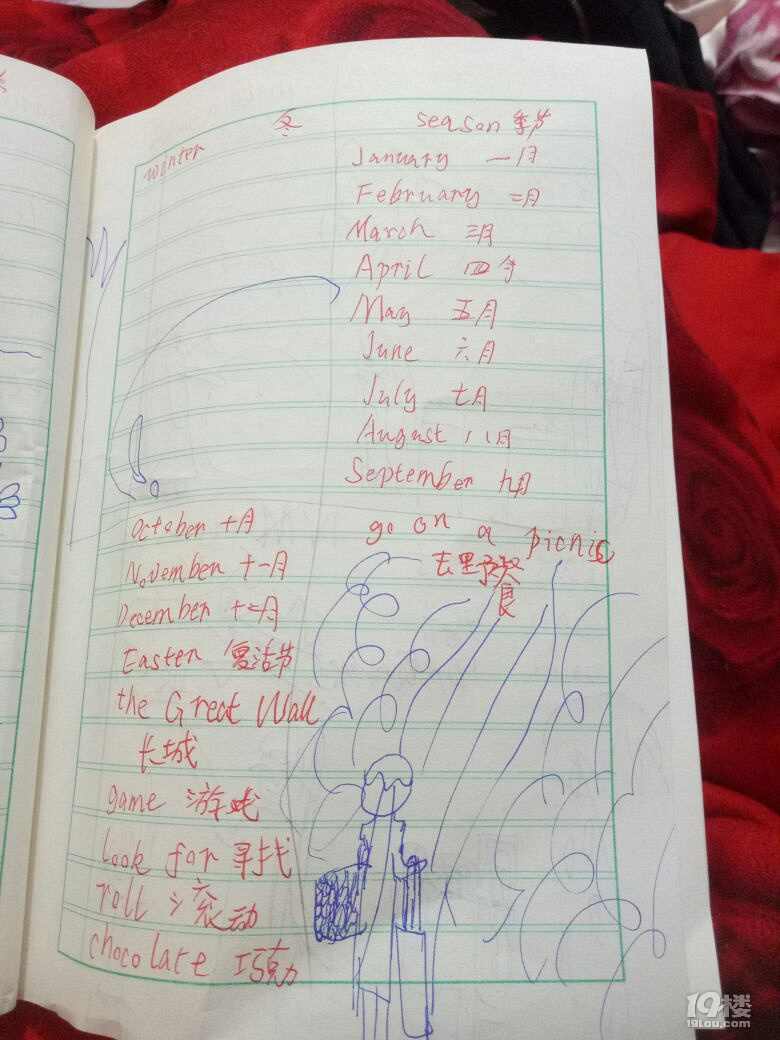 winter 冬 season 季节
January 一月
February 二月
March 三月
April 四月
May 五月
June 六月
July 七月
August 八月
September 九月
October 十月
November 十一月
December 十二月
Easter 复活节
the Great Wall
长城
game 游戏
look for 寻找
roll 滚动
chocolate 巧克力
go on a picnic
去野餐
19楼
19LOU.COM